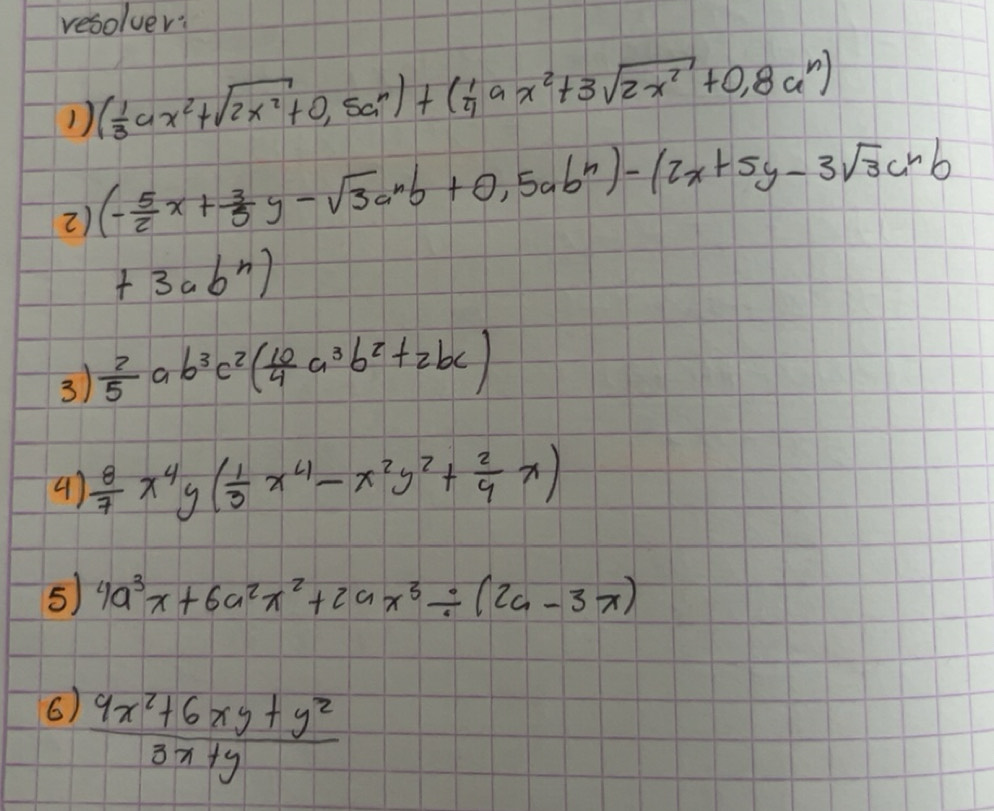 resolver:
1) (1/3 ax² + √2x² + 0,5aⁿ) + (1/4 ax² + 3√2x² + 0,8aⁿ)
2) (-5/2 x + 3/3 y - √3aⁿb + 0,5abⁿ) - (2x + 5y - 3√3aⁿb
+ 3abⁿ)
3) 2/5 ab³c² (10/4 a³b² + 2bc)
4) 8/7 x⁴y (1/3 x⁴ - x²y² + 2/4 x)
5) 4a³x + 6a²x² + 2ax³ ÷ (2a - 3x)
6) 9x² + 6xy + y²
3x + y